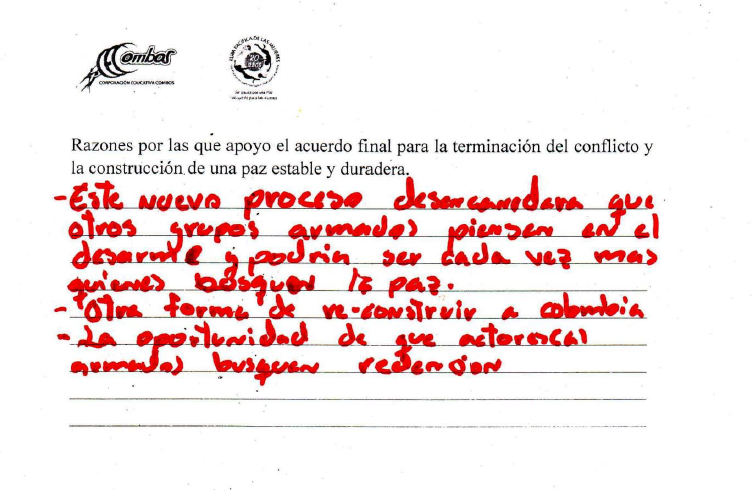 Combos
CORPORACIÓN EDUCATIVA COMBOS
RUTA PACÍFICA DE LAS MUJERES
20
años
Razones por las que apoyo el acuerdo final para la terminación del conflicto y
la construcción de una paz estable y duradera.
- Este nuevo proceso desencanedara que
otros grupos armados piensen en el
desarme y podrin ser cada vez mas
quienes busquen la paz.
- Otra forma de re-construir a colombia
- La oportunidad de que actores(as)
armados busquen redencion